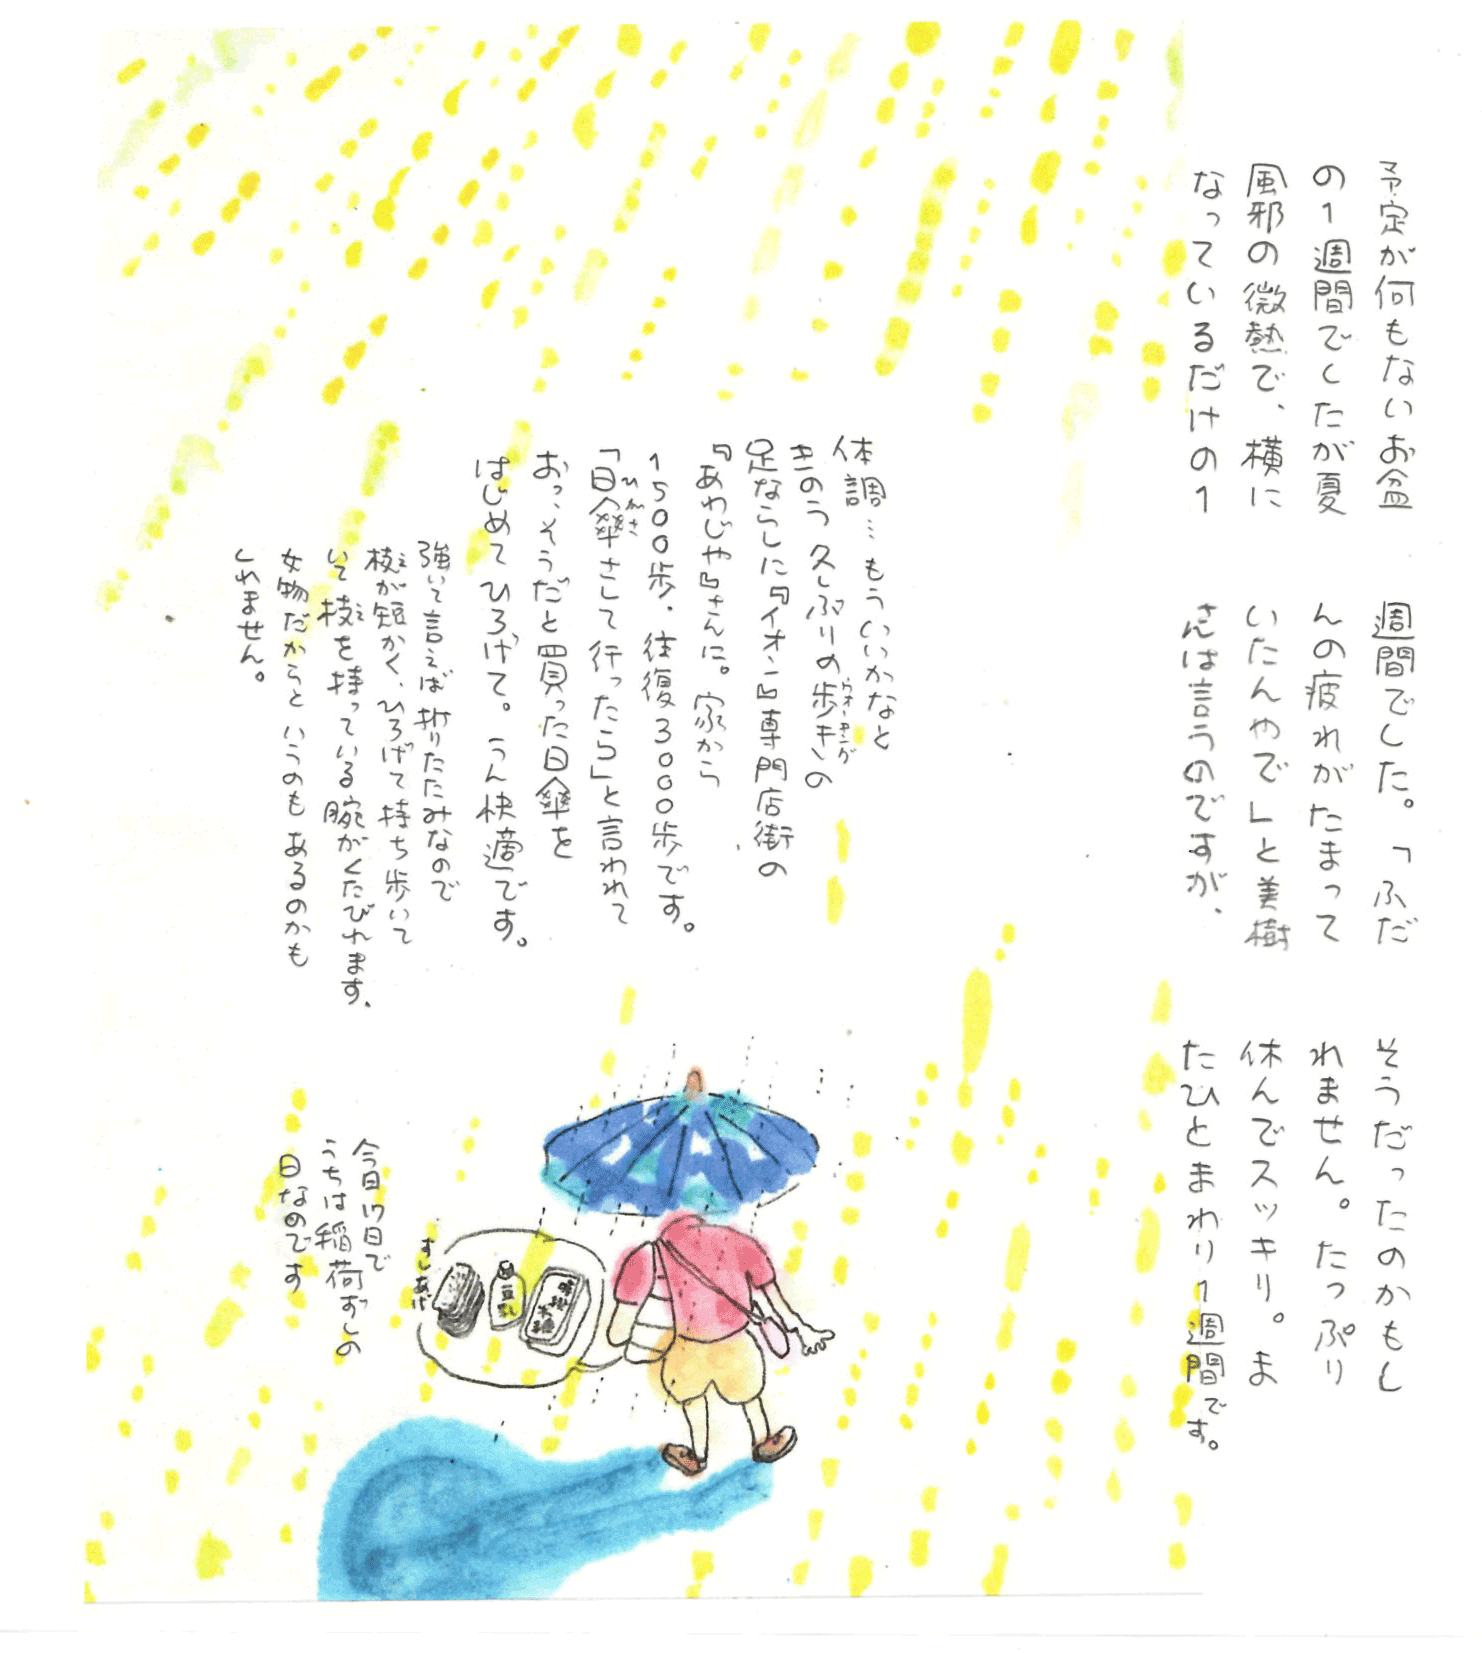 予定が何もないお盆
の1週間でしたが夏
風邪の微熱で、横に
なっているだけの1
週間でした。「ふだ
んの疲れがたまって
いたんやで」と美樹
さんは言うのですが、
そうだったのかもし
れません。たっぷり
休んでスッキリ。ま
たひとまわり1週間です。
体調…もういいかなと
きのう久しぶりの歩キの
ウォーキング
足ならしに『イオン』専門店街の
『あわじや』さんに。家から
1500歩、往復3000歩です。
「日傘さして行ったら」と言われて
ひがさ
おっ、そうだと買った日傘を
はじめてひろげて。うん快適です。
強いて言えば折りたたみなので
枝が短かく、ひろげて持ち歩いて
え
いて枝を持っている腕がくたびれます、
え
女物だからというのもあるのかも
しれません。
すしあげ
豆乳
今日17日で
うちは稲荷ずしの
日なのです